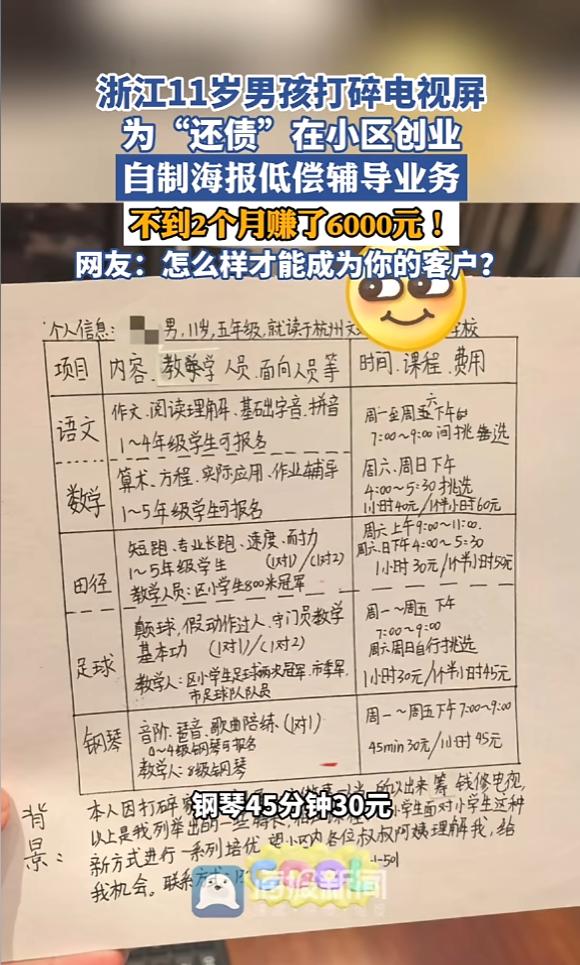 浙江11岁男孩打碎电视屏
为“还债”在小区创业
自制海报低偿辅导业务
不到2个月赚了6000元！
网友：怎么样才能成为你的客户？
个人信息： 男，11岁，五年级，就读于杭州文 学校
项目 内容、教学人员、面向人员等 时间、课程、费用
语文 作文、阅读理解、基础字音、拼音
1~4年级学生可报名
周一至周五下午
7:00~9:00间挑选
数学 算术、方程、实际应用、作业辅导
1~5年级学生可报名
周六、周日下午
4:00~5:30挑选
1小时40元/1个半小时60元
田径 短跑、专业长跑、速度、耐力
1~5年级学生 (1对1)/(1对2)
教学人员：区小学生800米冠军
周六上午9:00~11:00.
周六、日下午4:00~5:30
1小时30元/1个半小时50元
足球 颠球，假动作过人、守门员教学
基本功 (1对1)/(1对2)
教学人：区小学生足球两次冠军、市季军、
市足球队队员
周一~周五下午
7:00~9:00
周六周日自行挑选
1小时30元/1个半小时45元
钢琴 音阶、琶音、歌曲陪练、(1对1)
0~4级钢琴可报名
教学人：8级钢琴
周一~周五下午7:00~9:00
45min 30元/1小时45元
背景： 本人因打碎 所以出来筹钱修电视，
以上是我列举出的一些特长， 小学生面对小学生这种
新方式进行一系列培优 望小区内各位叔叔阿姨理解我，给
我机会。联系方式：
钢琴45分钟30元
GOOL
海报新闻